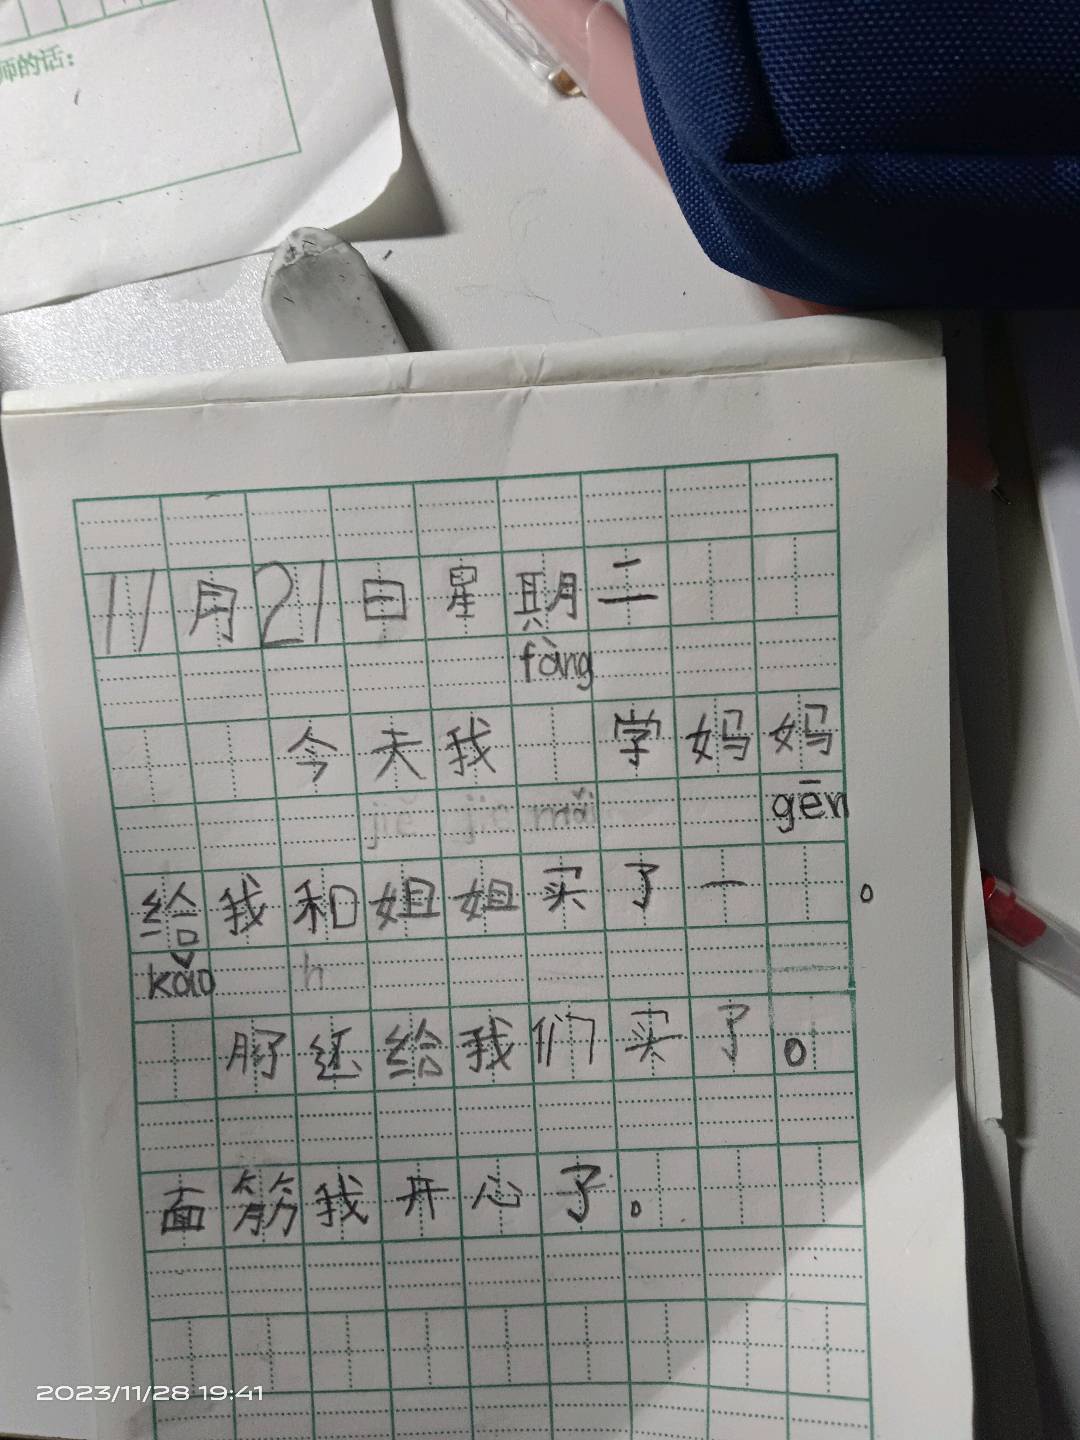 师的话：
11月21日星期二
fàng
今天我 学妈妈
jiě jie mǎi gēn
给我和姐姐买了一 。
kǎo h
还给我们买了。
面筋我开心了。
2023/11/28 19:41